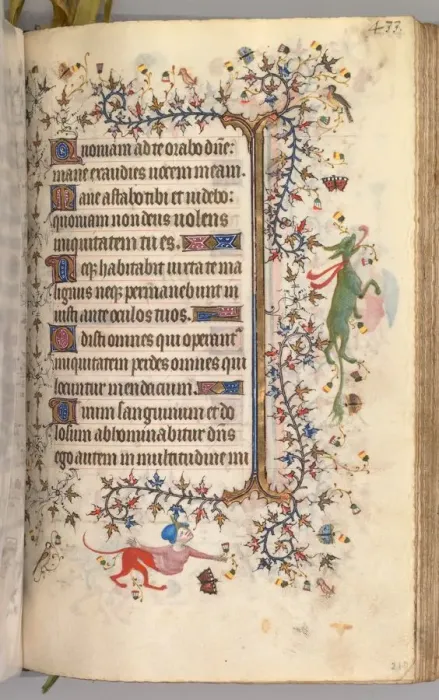 433.
Quoniam ad te orabo dn̄e:
mane exaudies uocem meam.
Mane astabo tibi et uidebo:
quoniam non deus uolens
iniquitatem tu es.
Neqꝫ habitabit iuxta te ma
lignus neqꝫ permanebunt in
iusti ante oculos tuos.
Odisti omnes qui operant᷑
iniquitatem perdes omnes qui
locuntur mendacium.
Uirum sanguinum et do
losum abhominabitur dn̄s
ego autem in multitudine mi